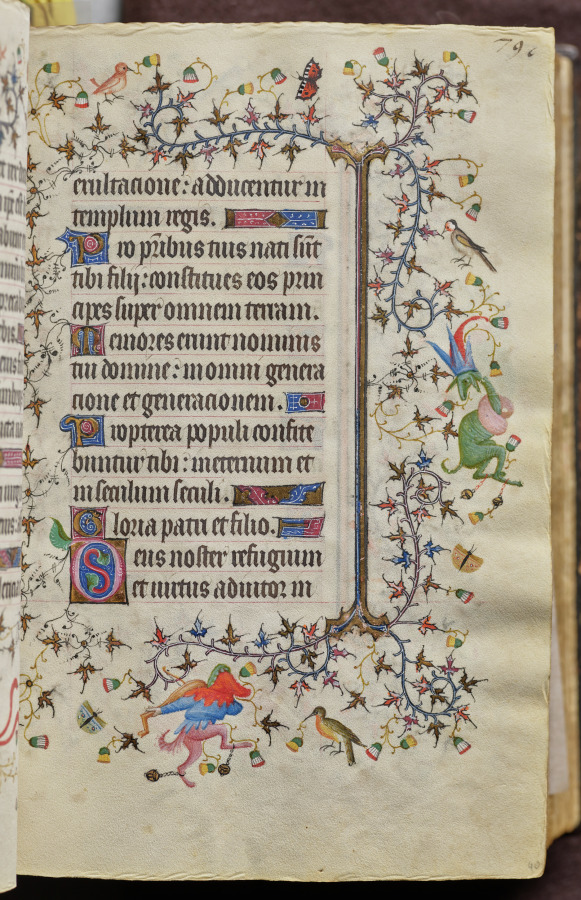 796
exultacione: adducentur in
templum regis.
Pro pr̄ibus tuis nati sūt
tibi filij: constitues eos prin
cipes super omnem terram.
Memores erunt nominis
tui domine: in omni genera
cione et generacionem.
Propterea populi confite
buntur tibi: in eternum et
in seculum seculi.
Gloria patri et filio.
Deus noster refugium
et uirtus adiutor in